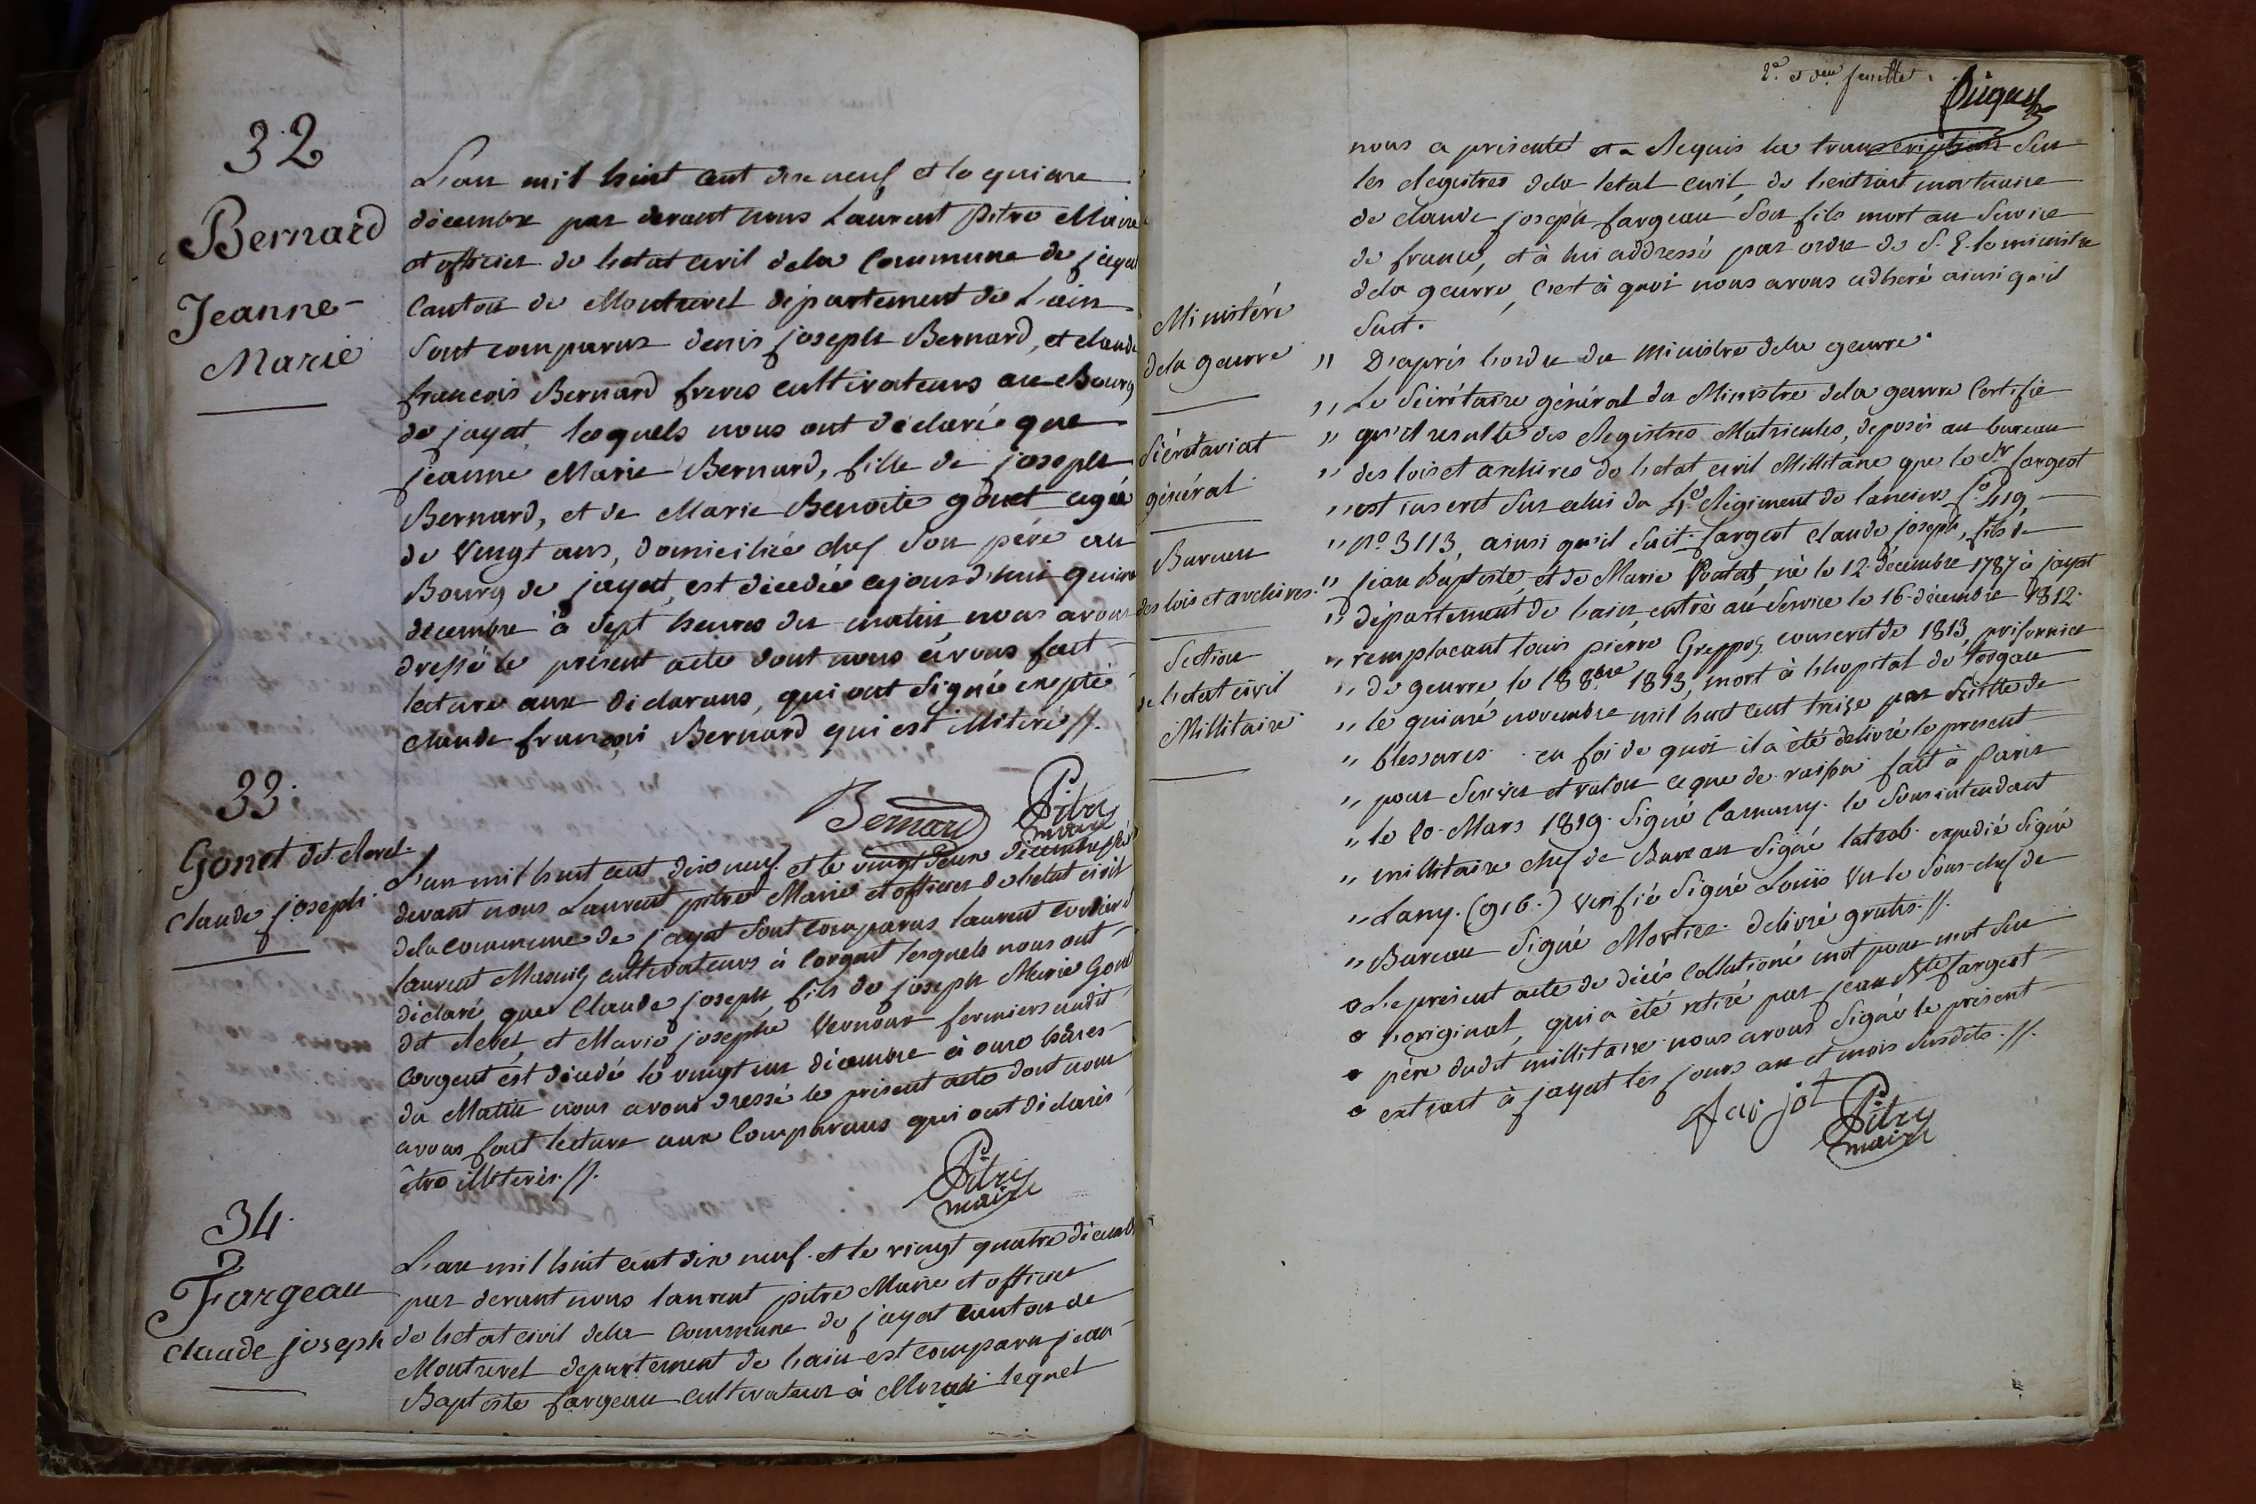 32
Bernard
Jeanne-
Marie
L'an mil huit cent dix neuf et le quinze
décembre par devant nous Laurent Pitre Maire
et officier de l'etat civil dela Commune de jayat
Canton de Montrevel département de L'ain
Sont comparus denis joseph Bernard, et claude
françois Bernard freres cultivateurs au Bourg
de jayat, lesquels nous ont déclaré que
jeanne Marie Bernard, fille de joseph
Bernard, et de Marie Benoite gonet agée
de Vingt ans, domiciliée chef son pére au
Bourg de jayat, est décedée cejourd'hui quinze
décembre à Sept heures du matin nous avons
dressé le présent acte dont nous avons fait
lecture aux Déclarans, qui ont Signé excpté
claude françois Bernard qui est illiteré //.
Bernard
Pitre
maire
33.
Gonet dit clerel.
Claude joseph
L'an mil huit cent dix neuf et le vingt deux décembre par
devant nous Laurent pitre Maire et officier de l'etat civil
dela commune de jayat Sont comparus laurent
laurent cultivateurs à Corgent lesquels nous ont
déclaré que Claude joseph, fils de joseph Marie Gonet
dit clerel, et Marie josephe Vernoux fermiers audit
Corgent est décédé le vingt un décembre à onze heures
du Matin nous avons dressé le présent acte dont nous
avons fait lecture aux Comparans qui ont déclarés
être illiterés. //.
Pitre
maire
34.
Fargeau
claude joseph
L'an mil huit cent dix neuf. et le vingt quatre décembre
par devant nous laurent pitre Maire et officier
de l'etat civil dela Commune de jayat Canton de
Montrevel departement de l'ain est comparu jean
Baptiste fargeau cultivateur à lequel
2e et feuillet.
nous a présenté et a Requis la transcription Sur
les Registres dela l'etat civil, de l'extrait mortuaire
de claude joseph fargeau Son fils mort au Service
de france, et à lui addressé par ordre de S. E. le ministre
dela geurre, C'est à quoi nous avons adheré ainsi qu'il
Suit.
Ministéré
dela geurre
Sécrétariat
général
Bureau
des lois et archives.
Section
de l'etat civil
Millitaire
" D'aprés l'ordre du Ministre dela geurre.
" Le Sécrétaire général du Ministre dela geurre Certifie
" qu'il resulte des Registres Matricules, deposés au bureau
" des lois et archives de l'etat civil Millitaire que le Sr fargeot
" est inscrit Sur celui du 4e Régiment de lanciers fo 419,
" No. 3113, ainsi qu'il Suit. fargeot claude joseph, fils de
" jean Baptiste, et de Marie né le 12 décembre 1787 à jayat
" département de l'ain, entré au Service le 16 décembre 1812.
" remplacant louis pierre Greppos, conscrit de 1813, prisonnier
" de geurre le 18 8bre 1813, mort à l'hopital de torgau
" le quinze novembre mil huit cent treize par Suitte de
" blessures. en foi de quoi il a été delivré le present
" pour Servir et valoir ce que de raison. fait à Paris
" le 20 Mars 1819. Signé Le Sousintendant
" millitaire chef de Bureau Signé expedié Signé
" Lany. (916.) Verifié Signé Louis Vu le Sous-chef de
" Bureau Signé Mortier. delivré gratis. //.
Le présent acte de décés Collationé mot pour mot Sur
l'original, qui a été retiré par jean Bte fargeot
père dudit millitaire nous avons Signé le présent
extrait à jayat les jours an et mois Susdits. //.
farjot
Pitre
maire